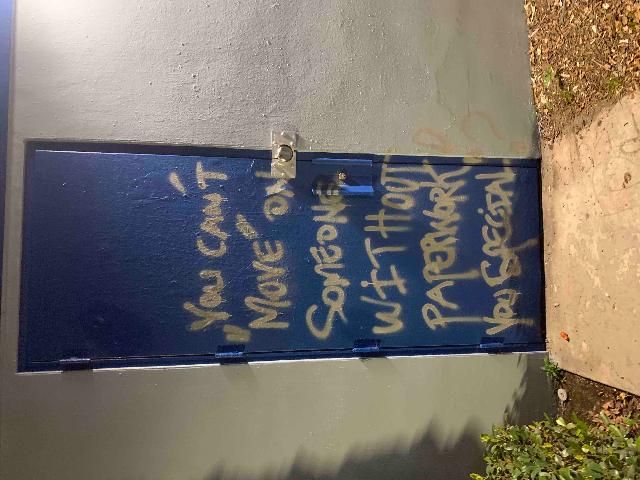 YOU CAN'T
"MOVE" ON
SOMEONE
WITHOUT
PAPERWORK
YOU